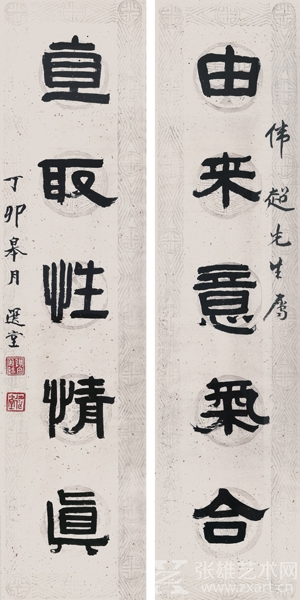 伟超先生属
由来意氣合
直取性情眞
丁卯皋月 選堂
张雄艺术网
www.zxart.cn